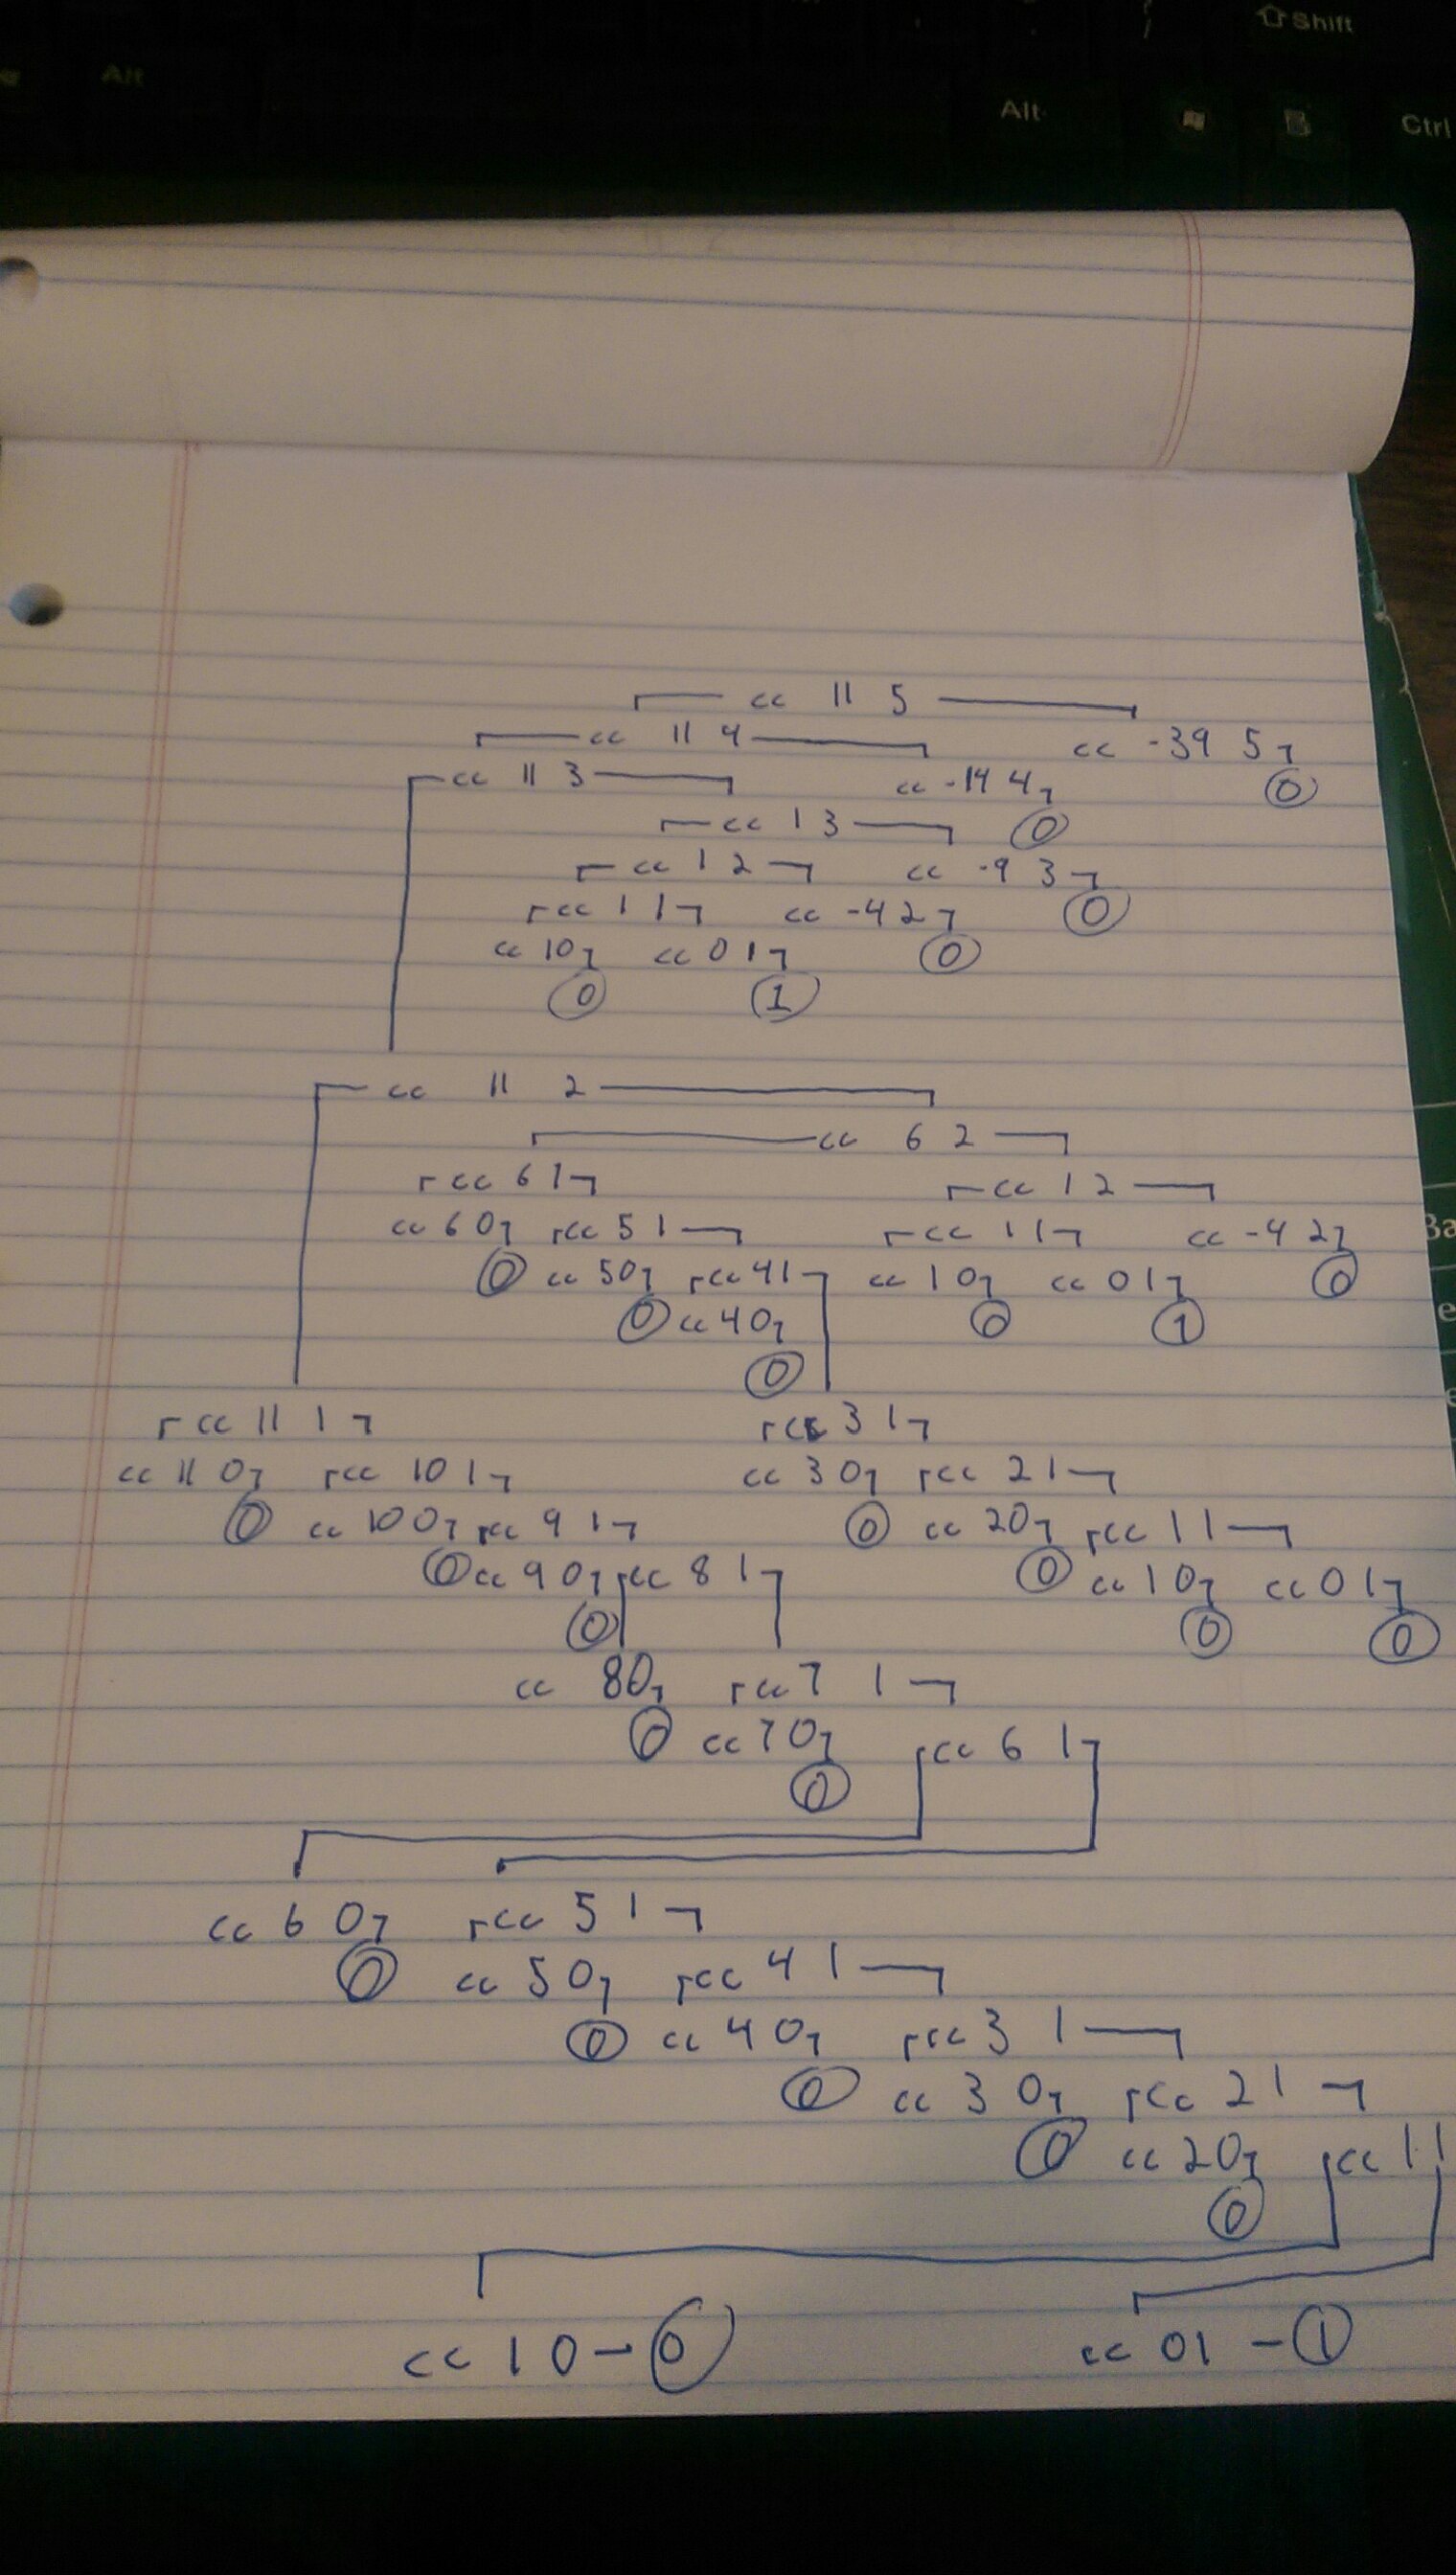 Shift
Alt Alt Ctrl
cc 11 5
cc 11 4 cc -39 5
cc 11 3 cc -14 4 0
cc 1 3 0
cc 1 2 cc -9 3
cc 1 1 cc -4 2 0
cc 1 0 cc 0 1 0
0 1
cc 11 2
cc 6 2
cc 6 1 cc 1 2
cc 6 0 cc 5 1 cc 1 1 cc -4 2
0 cc 5 0 cc 4 1 cc 1 0 cc 0 1 0
0 cc 4 0 0 1
0
cc 11 1 cc 3 1
cc 11 0 cc 10 1 cc 3 0 cc 2 1
0 cc 10 0 cc 9 1 0 cc 2 0 cc 1 1
0 cc 9 0 cc 8 1 0 cc 1 0 cc 0 1
0 0 0
cc 8 0 cc 7 1
0 cc 7 0 cc 6 1
0
cc 6 0 cc 5 1
0 cc 5 0 cc 4 1
0 cc 4 0 cc 3 1
0 cc 3 0 cc 2 1
0 cc 2 0 cc 1 1
0
cc 1 0 - 0 cc 0 1 - 1